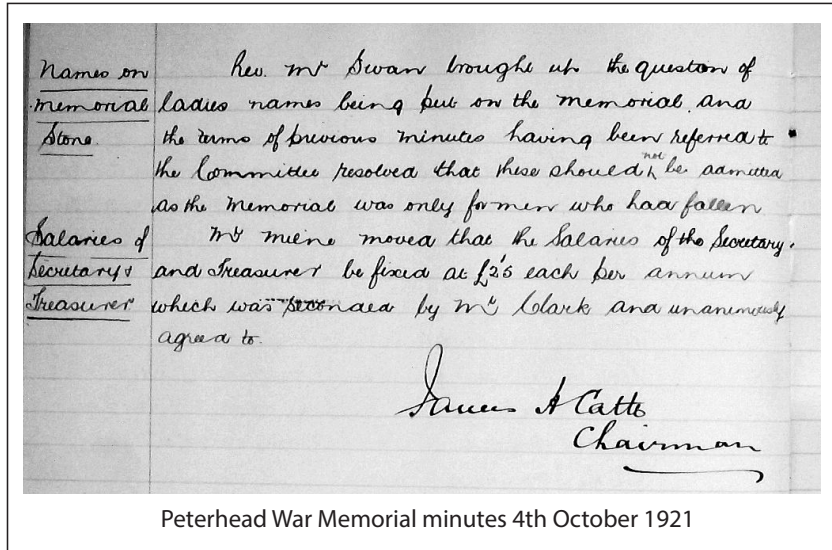 Names on
memorial
Stone.
Rev. Mr Swan brought up the question of
ladies names being put on the Memorial and
the terms of previous minutes having been referred to
the Committee resolved that these should not be admitted
as the Memorial was only for men who had fallen
Salaries of
Secretary &
Treasurer
Mr Milne moved that the Salaries of the Secretary
and Treasurer be fixed at £25 each per annum
which was seconded by Mr Clark and unanimously
agreed to.
James A Catto
Chairman
Peterhead War Memorial minutes 4th October 1921